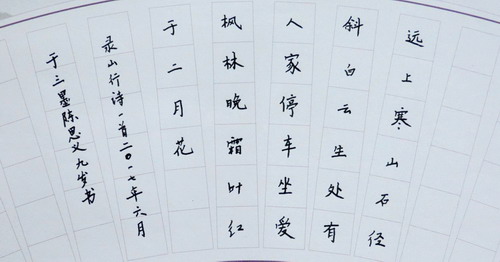 远上寒山石径
斜白云生处有
人家停车坐爱
枫林晚霜叶红
于二月花
录山行诗一首二〇一七年六月
于三墨陈思义九岁书